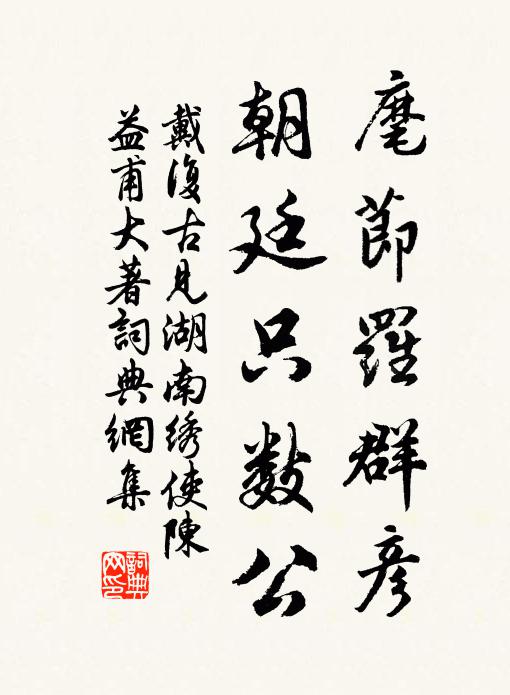 麾節羅群彦
朝廷只数公
戴復古見湖南绣使陳
益甫大著詞典網集
詞典網印